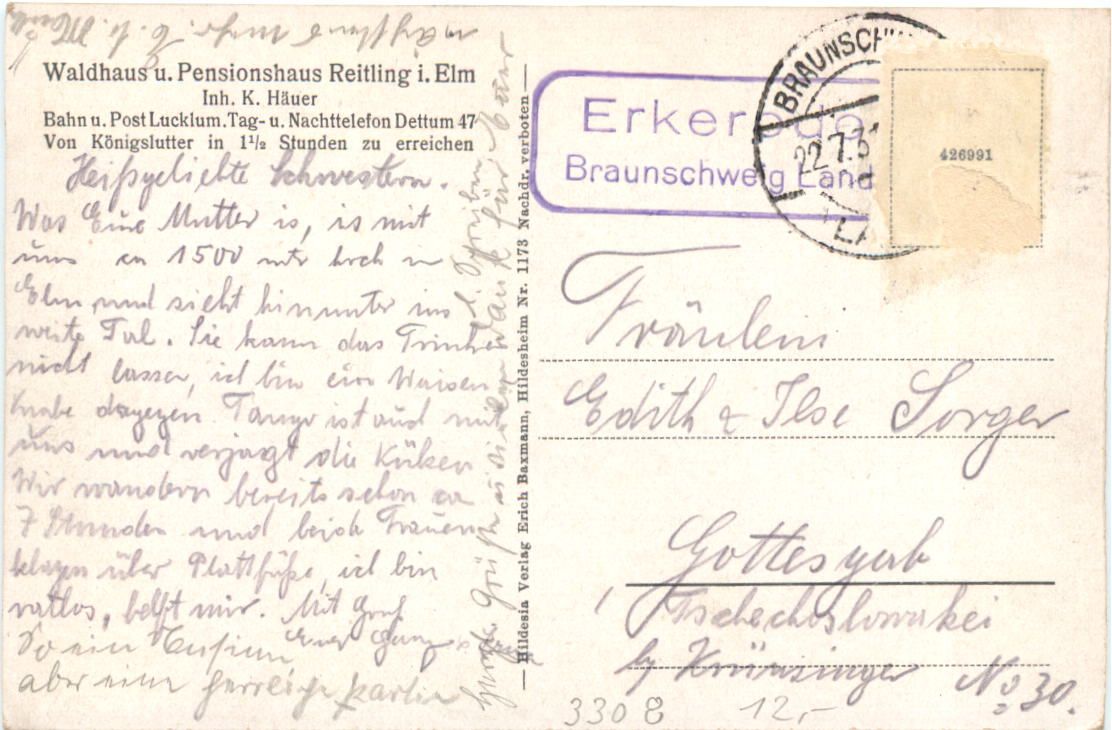 Waldhaus u. Pensionshaus Reitling i. Elm
Inh. K. Häuer
Bahn u. Post Lucklum. Tag- u. Nachttelefon Dettum 47
Von Königslutter in 1½ Stunden zu erreichen
Heißgeliebte Schwestern.
Was Eure Mutter is, is mit
uns ca 1500 mtr hoch in
Elm und sieht hinunter ins
weite Tal. Sie kann das Trinken
nicht lassen, ich bin ein Waisen
knabe dagegen. Tango ist auch mit
uns und verjagt die Küken
Wir wandern bereits schon ca
7 Stunden und beide Frauen
klagen über Plattfüße, ich bin
ratlos, helft mir. Mit Gruß
Euer
So ein
aber eine herrliche Partie
Hildesia Verlag Erich Baxmann, Hildesheim Nr. 1173 Nachdr. verboten
Erkerode
Braunschweig Land
BRAUNSCHW
22.7.3
LA
426991
Fräulein
Edith & Ilse Sorger
Gottesgab
Tschechoslowakei
by Krünzinger No 30.
3308 12,-